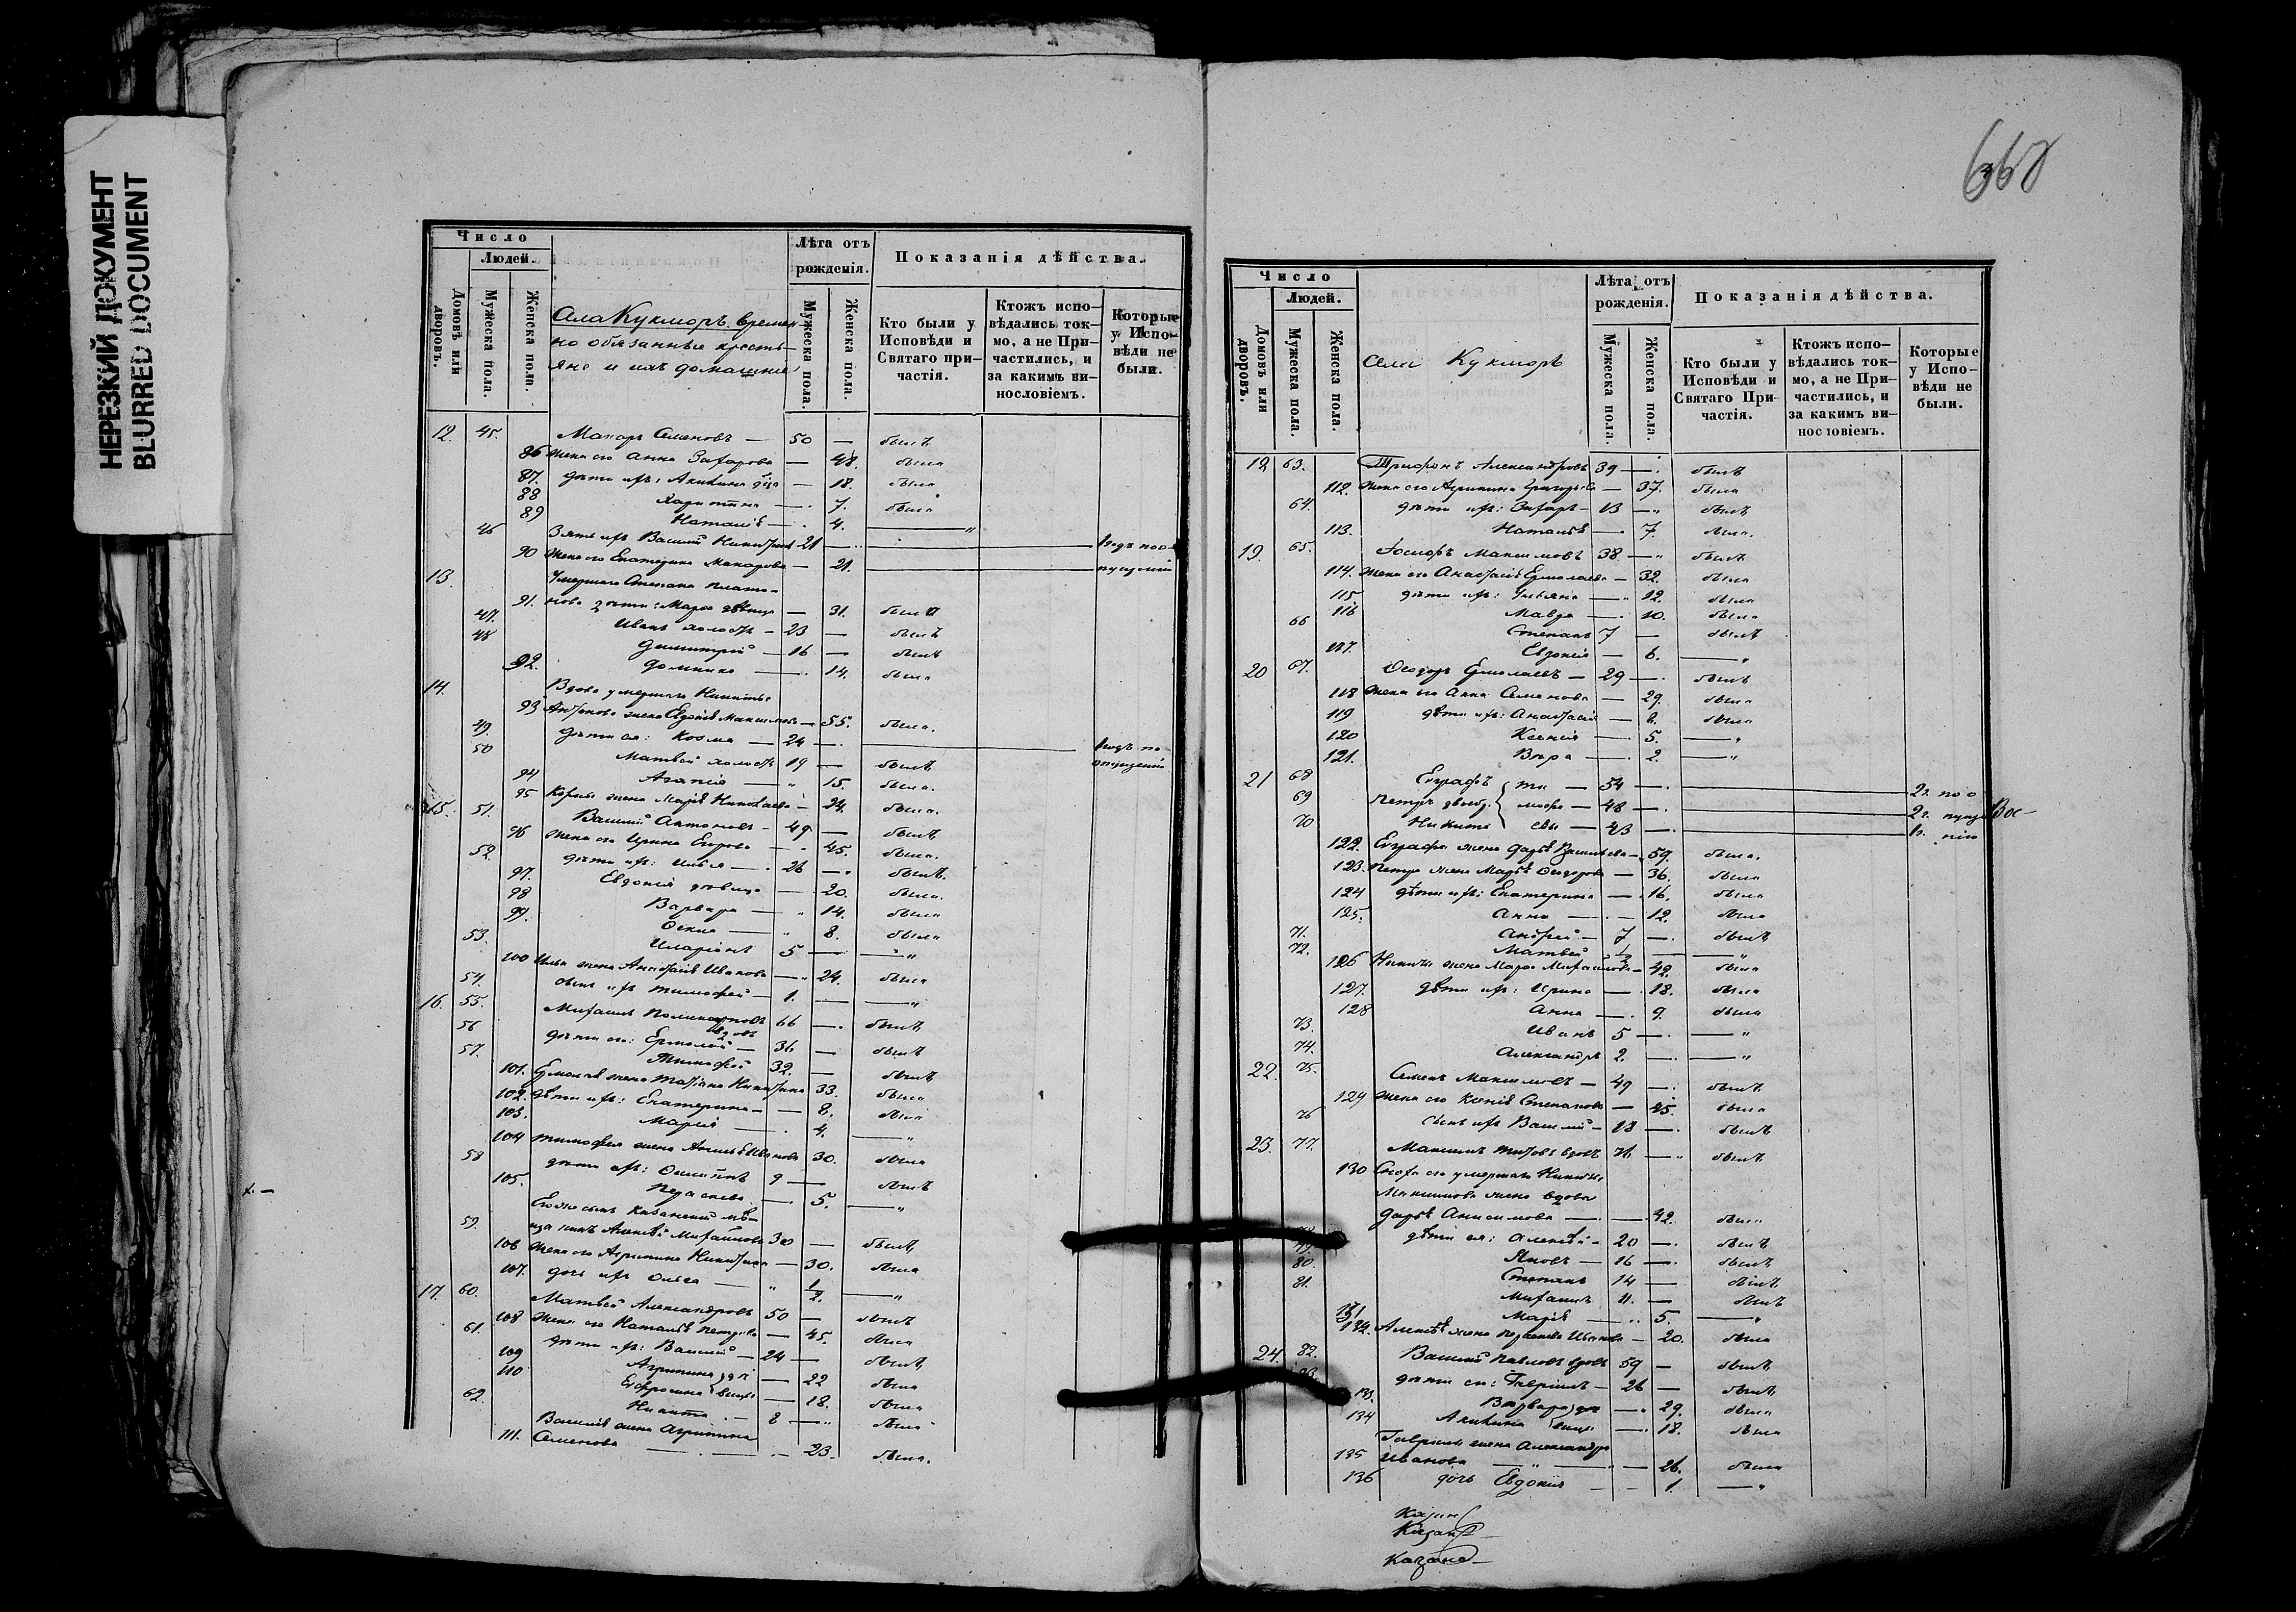 НЕРЕЗКИЙ ДОКУМЕНТ
BLURRED DOCUMENT
Число
Людей.
Домовъ или дворовъ.
Мужеска пола.
Женска пола.
Села Кукморъ времен-
но обязанные кресть-
яне и ихъ домашніе
Лѣта отъ рожденія.
Мужеска пола.
Женска пола.
Показанія дѣйства.
Кто были у Исповѣди и Святаго при-частія.
Ктожъ испо-вѣдались ток-мо, а не При-частились, и за какимъ ви-нословіемъ.
Которые у Испо-вѣди не были.
12. 45. Макаръ Семеновъ — 50 — былъ
86 Жена его Анна Захарова — 48. была
87. дѣти ихъ: Акилина — 18. была
88 Харитина — 7. была
89 Наталія — 4. — "
46 Зять ихъ Василій Никитинъ 21 —
90 Жена его Екатерина Макарова — 21.
13. Умершаго Степана Плато-
91. нова дѣти: Марѳа дѣвица — 31. была
47. Иванъ холостъ — 23 — былъ
48 Димитрій — 16 — былъ
92. Домника — 14. была
14. Вдова умершаго Никиты
93 Антонова жена Евдокія Максимова — 55. была.
49. дѣти ея: Козма — 24 —
50 Матвей холостъ 19 — былъ
94 Агапія — " 15. была.
95 Козмы жена Марія Николаева — 24. была.
15. 51. Василий Антоновъ — 49 — былъ
96 Жена его Ирина Егорова — 45. была.
52. дѣти ихъ: Илья — 26 — былъ.
97. Евдокія дѣвица — 20. была.
98 Варвара — " 14. была
99. Ѳекла — " 8. была
53. Иларіонъ 5 — — "
100 Ильи жена Анастасія Иванова — 24. была
54. сынъ ихъ Тимофей — 1. — — "
16. 55. Михаилъ Поликарповъ вдовъ 66 — былъ
56 дѣти его: Ермолай — 36 — былъ
57. Тимофей 32. — былъ
101. Ермолая жена Татіана Никитина 33. была
102. дѣти ихъ: Екатерина — — 8. была
103. Марія — 4. — "
104 Тимофея жена Анисья Иванова 30. была
58 дѣти ихъ: 9 — былъ
105. Параскева — 5. — "
Его же сынъ Казанский мѣ-
59. щанинъ Алексѣй Михайловъ 30 — былъ
106 Жена его Агрипина Никитина — 30. была
107. дочь ихъ Ольга — " 1/2. — "
17. 60. Матвей Александровъ 50 — былъ
108 Жена его Наталія Петрова — 45. была
61. дѣти ихъ: Василій — 24 — былъ
109 Агрипина дѣ- — 22 была
110 Евфросинія вицы — 18. была
62. Никита — 8 — "
Василія жена Агрипина
111. Семенова — 23. была.
Число
Людей.
Домовъ или дворовъ.
Мужеска пола.
Женска пола.
Села Кукморъ
Лѣта отъ рожденія.
Мужеска пола.
Женска пола.
Показанія дѣйства.
Кто были у Исповѣди и Святаго При-частія.
Ктожъ испо-вѣдались ток-мо, а не При-частились, и за какимъ ви-нословіемъ.
Которые у Испо-вѣди не были.
63. Трифонъ Александровъ 39 — былъ
112. Жена его Агрипина Григорьева — 37. была
64. дѣти ихъ: Захаръ — 13 — " былъ
113. Наталья — 7. была.
19. 65. Іосифъ Максимовъ 38 — " былъ
114. Жена его Анастасія Ермолаева — 32. была
115. дѣти ихъ: Ульяна — " 12. была
116 Мавра — 10. была
66 Степанъ 7 — былъ
117. Евдокія — 6. — "
20 67. Ѳеодоръ Ермолаевъ — 29 — былъ
118 Жена его Анна Семенова — 29. была
119 дѣти ихъ: Анастасія — 8. была
120 Ксенія — 5. — "
121. Вѣра — 2. — "
21 68 Евграфъ — 54 —
69 Петръ — 48 —
70 Никита — 43 —
122. Евграфа жена Дарья Васильева — 59. была.
123. Петра жена Марья Ѳеодорова — 36. была
124 дѣти ихъ: Екатерина — 16. была
125. Анна — 12. была
71. Андрей — 7 — былъ
72. Матвей 1/2 — — "
126 Никиты жена Марѳа Михайлова — 42. была
127. дѣти ихъ: Ирина — 18. была
128 Анна — 9. была
73. Иванъ 5 — — "
74. Александръ 2. — — "
22. 75. Семенъ Максимовъ — 49 — былъ
129 Жена его Ксенія Степанова — 45. была
76 сынъ ихъ Василій — 18 — былъ
23. 77. Максимъ Титовъ вдовъ 71. — " былъ
130 Сноха его умершаго Никиты
Максимова жена вдова
Дарья Анисимова — 42. была
дѣти ея: Алексѣй — 20 — былъ
80. Яковъ — 16 — былъ
81. Степанъ 14 — былъ
Михаилъ 11. — былъ
131 Марія — 5. — "
132. Алексѣя жена Параскева Иванова — 20. была
24. 82. Василий Павловъ вдовъ 59 — былъ
дѣти его: Гавріилъ — 26 — былъ
133. Варвара — 29. была
134 Акилина — 18. была
Гавріила жена Александра
135 Иванова — 26. была
136 дочь Евдокія — 1. — "
Казан
Казан
Казан